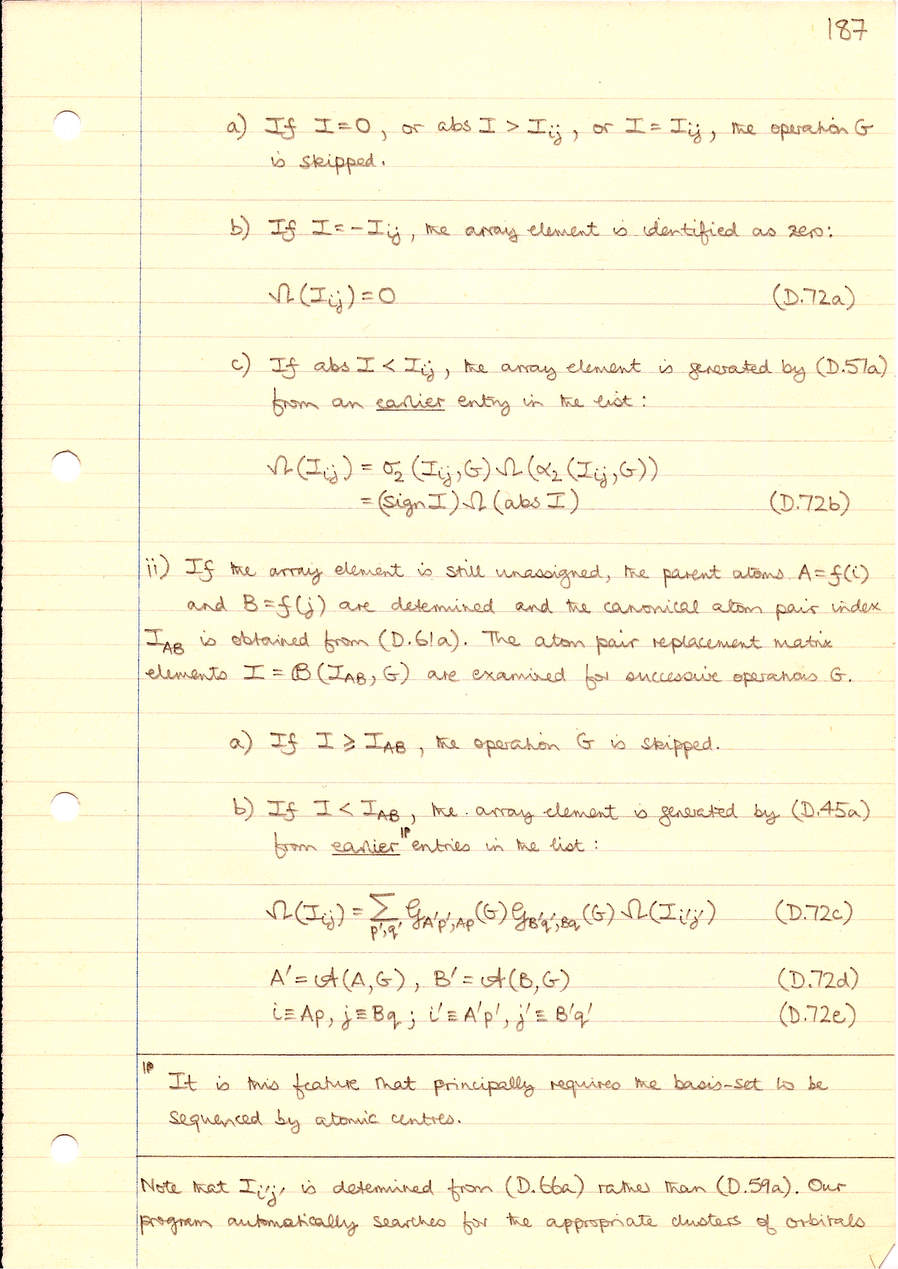 187
a) If I=0, or abs I > Iij, or I = Iij, the operation G
is skipped.
b) If I=-Iij, the array element is identified as zero:
Ω(Iij)=0 (D.72a)
c) If abs I < Iij, the array element is generated by (D.51a)
from an earlier entry in the list:
Ω(Iij) = σ₂(Iij,G)Ω(α₂(Iij,G))
=(sign I)Ω(abs I) (D.72b)
ii) If the array element is still unassigned, the parent atoms A=f(i)
and B=f(j) are determined and the canonical atom pair index
I_AB is obtained from (D.61a). The atom pair replacement matrix
elements I = ℬ(I_AB, G) are examined for successive operations G.
a) If I ⩾ I_AB, the operation G is skipped.
b) If I < I_AB, the array element is generated by (D.45a)
from earlier^1P entries in the list:
Ω(Iij) = Σ_p',q' 𝒢_A'p',Ap(G) 𝒢_B'q',Bq(G) Ω(Ii'j') (D.72c)
A' = 𝒜(A,G), B' = 𝒜(B,G) (D.72d)
i≡Ap, j≡Bq; i'≡A'p', j'≡B'q' (D.72e)
1P It is this feature that principally requires the basis-set to be
sequenced by atomic centres.
Note that Ii'j' is determined from (D.66a) rather than (D.59a). Our
program automatically searches for the appropriate clusters of orbitals